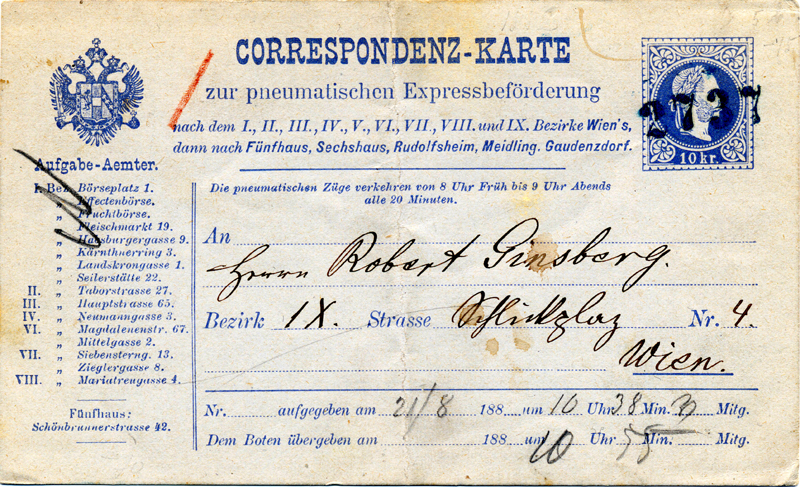 CORRESPONDENZ-KARTE
zur pneumatischen Expressbeförderung
nach dem I., II., III., IV., V., VI., VII., VIII. und IX. Bezirke Wien's,
dann nach Fünfhaus, Sechshaus, Rudolfsheim, Meidling. Gaudenzdorf.
2737
10 kr.
Aufgabe-Aemter.
I. Bez. Börseplatz 1.
„ Effectenbörse.
„ Fruchtbörse.
„ Fleischmarkt 19.
„ Habsburgergasse 9.
„ Kärnthnerring 3.
„ Landskrongasse 1.
„ Seilerstätte 22.
II. „ Taborstrasse 27.
III. „ Hauptstrasse 65.
IV. „ Neumanngasse 3.
VI. „ Magdalenenstr. 67.
„ Mittelgasse 2.
VII. „ Siebensterng. 13.
„ Zieglergasse 8.
VIII. „ Mariatreugasse 4.
Fünfhaus:
Schönbrunnerstrasse 42.
Die pneumatischen Züge verkehren von 8 Uhr Früh bis 9 Uhr Abends
alle 20 Minuten.
An
Herrn Robert Ginsberg.
Bezirk IX. Strasse Schlickplaz Nr. 4.
Wien.
Nr. aufgegeben am 21/8 188 um 10 Uhr 38 Min. Mitg.
Dem Boten übergeben am 188 um 10 Uhr 55 Min. Mitg.